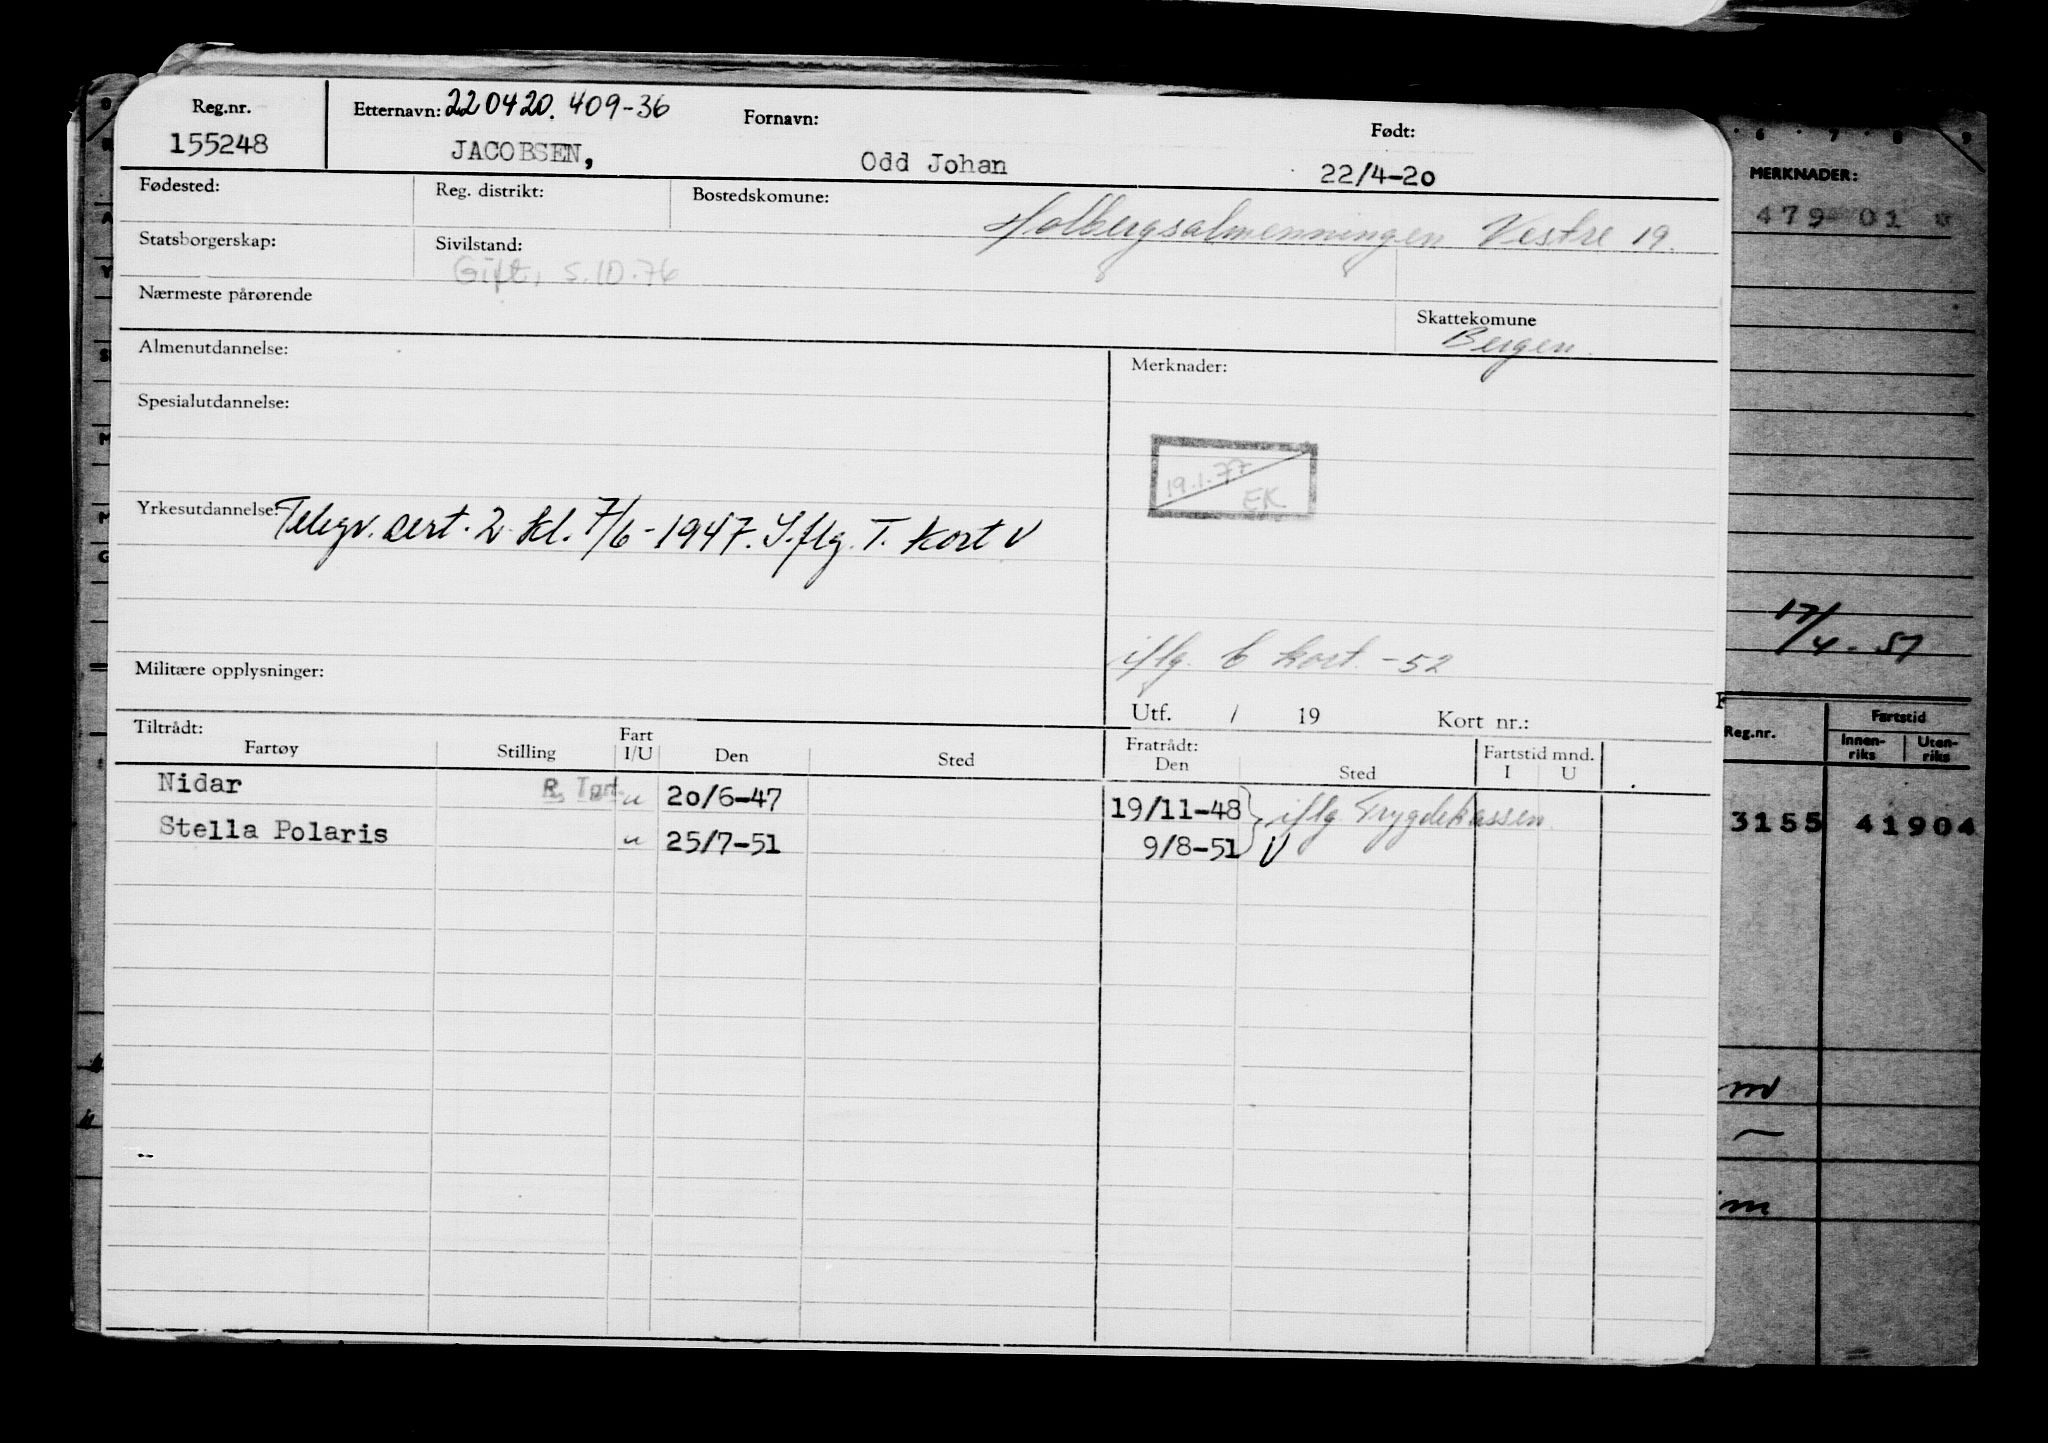 Reg.nr. Etternavn: 220420. 409-36 Fornavn: Født:
155248 JACOBSEN, Odd Johan 22/4-20
Fødested: Reg. distrikt: Bostedskomune: Holbergsalmenningen Vestre 19.
Statsborgerskap: Sivilstand:
Gift, 5.10.76
Nærmeste pårørende Skattekomune
Bergen.
Almenutdannelse: Merknader:
Spesialutdannelse:
19.1.77
EK
Yrkesutdannelse: Telegr. cert. 2 kl. 7/6-1947. I.flg. T. kort V
iflg. kort. -52
Militære opplysninger:
Utf. / 19 Kort nr.:
Tiltrådt: Fratrådt: Fartstid mnd.
Fartøy Stilling Fart I/U Den Sted Den Sted I U
Nidar u 20/6-47 19/11-48 iflg Trygdekassen
Stella Polaris u 25/7-51 9/8-51 V
6 7 8 9
MERKNADER:
479 01
17/4-51
Reg.nr. Fartstid
Innen-riks Uten-riks
3155 41904